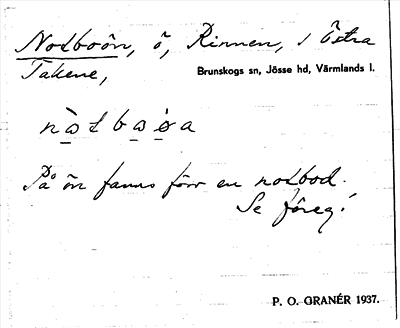 Notboön, ö, Rinnen, i Östra
Takene,
Brunskogs sn, Jösse hd, Värmlands l.
nòtboøa
På ön fanns förr en notbod.
Se föreg!
P. O. GRANÉR 1937.